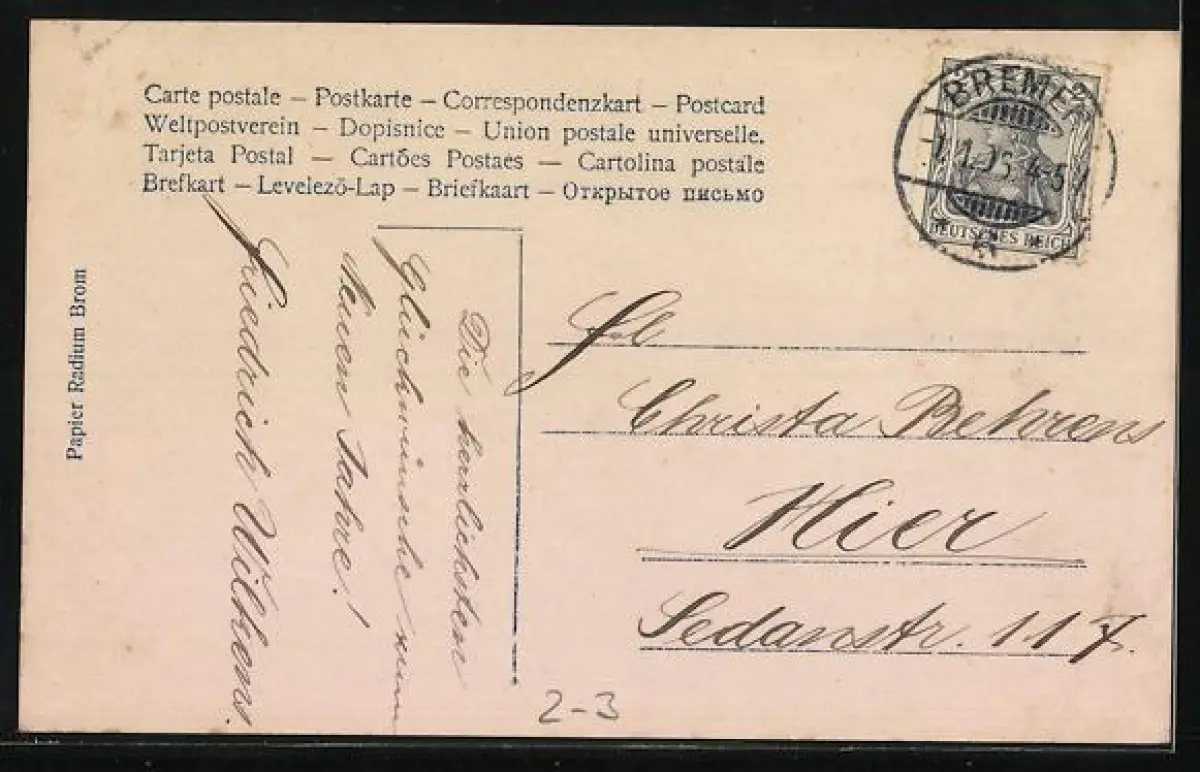 Carte postale – Postkarte – Correspondenzkart – Postcard
Weltpostverein – Dopisnice – Union postale universelle.
Tarjeta Postal — Cartões Postaes — Cartolina postale
Brefkart – Levelező-Lap – Briefkaart – Открытое письмо
BREMEN
1.1.05. 4-5
DEUTSCHES REICH
Papier Radium Brom
Die herzlichsten
Glückwünsche zum
Neuen Jahre!
Friedrich Wilkens.
Frl
Christa Behrens
Hier
Sedanstr. 117.
2-3